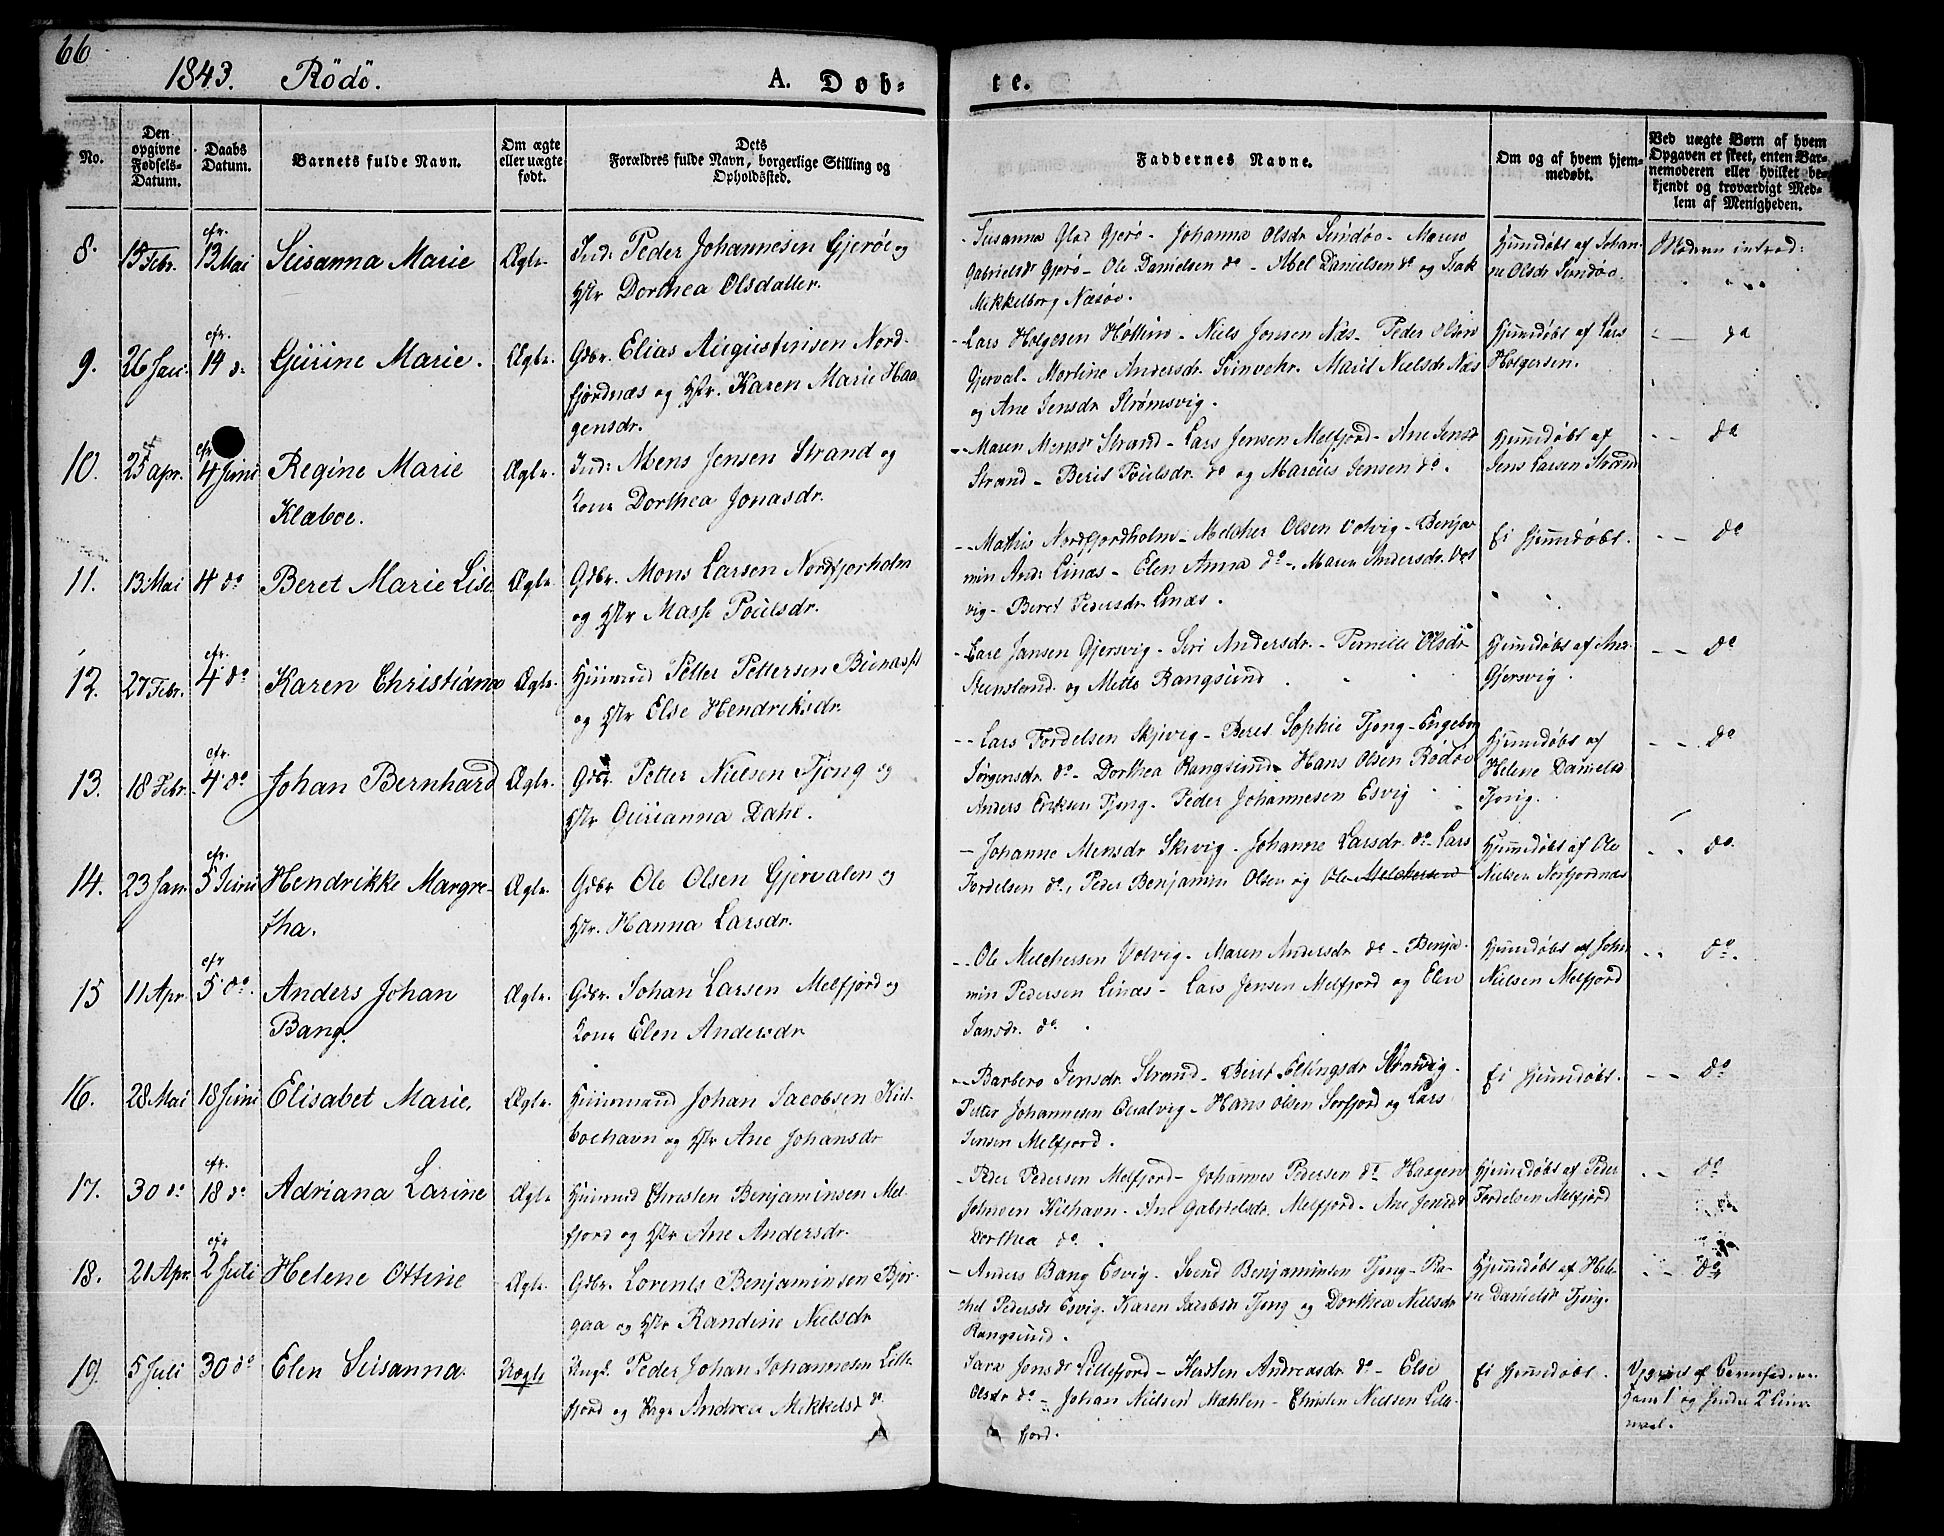 66
1843. Rödö.
A. Døb-
te.
No.
Den opgivne Fødsels-Datum.
Daabs Datum.
Barnets fulde Navn.
Om ægte eller uægte født.
Dets Forældres fulde Navn, borgerlige Stilling og Opholdssted.
Faddernes Navne.
Om og af hvem hjemmedøbt.
Ved uægte Børn af hvem Opgaven er skeet, enten Barnemoderen eller hvilket bekjendt og troværdigt Medlem af Menigheden.
8. 15 Febr. efr. 13 Mai Susanna Marie Ægte. Ind: Peder Johannesen Gjerøe og
Hstr Dorthea Olsdatter.
Susanna Glad Gjerø - Johanna Olsdr Sundöe - Maren
Gabrielsdr Gjerø - Ole Danielsen do - Abel Danielsen do og Isak
Mikkelborg Næsøe.
Hjemdøbt af Johan-
ne Olsdr Sundöe.
Moderen introd:
9. 26 Jan. efr. 14 d. Gurine Marie. Ægte. Gdbr. Elias Augustinsen Nord-
fjordnæs og Hstr. Karen Marie Haa
gensdr.
Lars Holgesen - Niels Jensen Næs - Peder Olsen
Gjerval - Mortine Andersdr. - Marit Nielsdr Næs
og Ane Jensdr Strømsvig.
Hjemdøbt af Lars
Holgersen.
do
10. 25 Apr. efr. 4 Juni Regine Marie
Klæboe.
Ægte. Ind: Mens Jensen Strand og
Kone Dorthea Jonasdr.
Maren Mensdr Strand - Lars Jensen Melfjord - Ane Jensdr
Strand - Berit Poulsdr. do og Marcus Jensen do.
Hjemdøbt af
Jens Larsen Strand
do
11. 13 Mai 4 do Beret Marie Lise Ægte. Gdbr. Mons Larsen Nordfjorholm
og Hstr Masse Poulsdr.
Mathis Nordfjordholm - Melcher Olsen Volvig - Benja
min And: Linæs - Elen Anna do - Maren Andersdr. Vol
vig - Beret Pedersdr Linæs.
Ei hjemdøbt.
do
12. 27 Febr. efr. 4 do Karen Christiane Ægte. Huusmand Petter Pettersen
og Hstr Else Hendriksdr.
Jansen Gjersvig - Siri Andersdr. - Pernille Olsdr
og Mette Rangsund
Hjemdøbt af
Gjersvig.
do
13. 18 Febr. efr. 4 do Johan Bernhard Ægte. Gdbr. Petter Nielsen Tjong og
Hstr Gurianna Dahl.
Lars Fordelsen Skjvig - Beret Sophie Tjong - Engeborg
Jørgensdr do - Dorthea Rangsund - Hans Olsen Rödöe
Anders Eriksen Tjong - Peder Johannesen Esvig
Hjemdøbt af
Helene Danielsd
Tjong.
do
14. 23 Jan. efr. 5 Juni Hendrikke Margre-
tha.
Ægte. Gdbr Ole Olsen Gjervalen og
Hstr. Hanna Larsdr.
Johanne Mensdr Skivig - Johanne Larsdr. do - Lars
Fordelsen do, Peder Benjamin Olsen og Ole Melchersen
Hjemdøbt af Ole
Nielsen Norfjordnæs
do.
15 11 Apr. efr 5 do. Anders Johan
Bang.
Ægte. Gdbr. Johan Larsen Melfjord og
Kone Elen Andersdr
Ole Melchersen Volvig - Maren Andersdr do - Benja-
min Pedersen Linæs - Lars Jensen Melfjord og Elen
Jansdr. do.
Hjemdøbt af John
Nielsen Melfjord
do.
16. 28 Mai 18 Juni Elisabet Marie. Ægte. Huusmand Johan Jacobsen Kil-
boehavn og Hstr Ane Johansdr
Barbero Jensdr Strand - Berit Ellingsdr
Petter Johannesen - Hans Olsen Sorfjord og Lars
Jensen Melfjord.
Ei hjemdøbt.
do
17. 30 do efr. 18 do Adriana Larine Ægte. Huusmd Christen Benjaminsen Mel-
fjord og Hstr Ane Andersdr.
Peder Pedersen Melfjord - Johannes Pedersen do Haagen
Johnsen Kilhavn - Ane Gabrielsdr. Melfjord - Ane Jensdr
Dorthea do.
Hjemdøbt af Peder
Fordelsen Melfjord
do
18. 21 Apr. efr 2 Juli Helene Ottine Ægte. Gdbr. Lorents Benjaminsen Bjør-
gaa og Hstr Randine Nielsdr
Anders Bang Esvig - Svend Benjaminsen Tjong - Ra-
chel Pedersdr Esvig - Karen Jacobsdr Tjong og Dorthea Nielsdr
Rangsund.
Hjemdøbt af Hele-
ne Danielsdr Tjong.
do
19. 5 Juli 30 do Elen Susanna. Uægte Ungk. Peder Johan Johannesen Lille
fjord og Pige Andrea Mikkelsd do.
Sara Jonsdr Lillefjord - Kirsten Andreasdr do - Else
Olsdr do - Johan Nielsen Mæhlen - Christen Nielsen Lille-
fjord.
Ei hjemdøbt.
og hendes 2